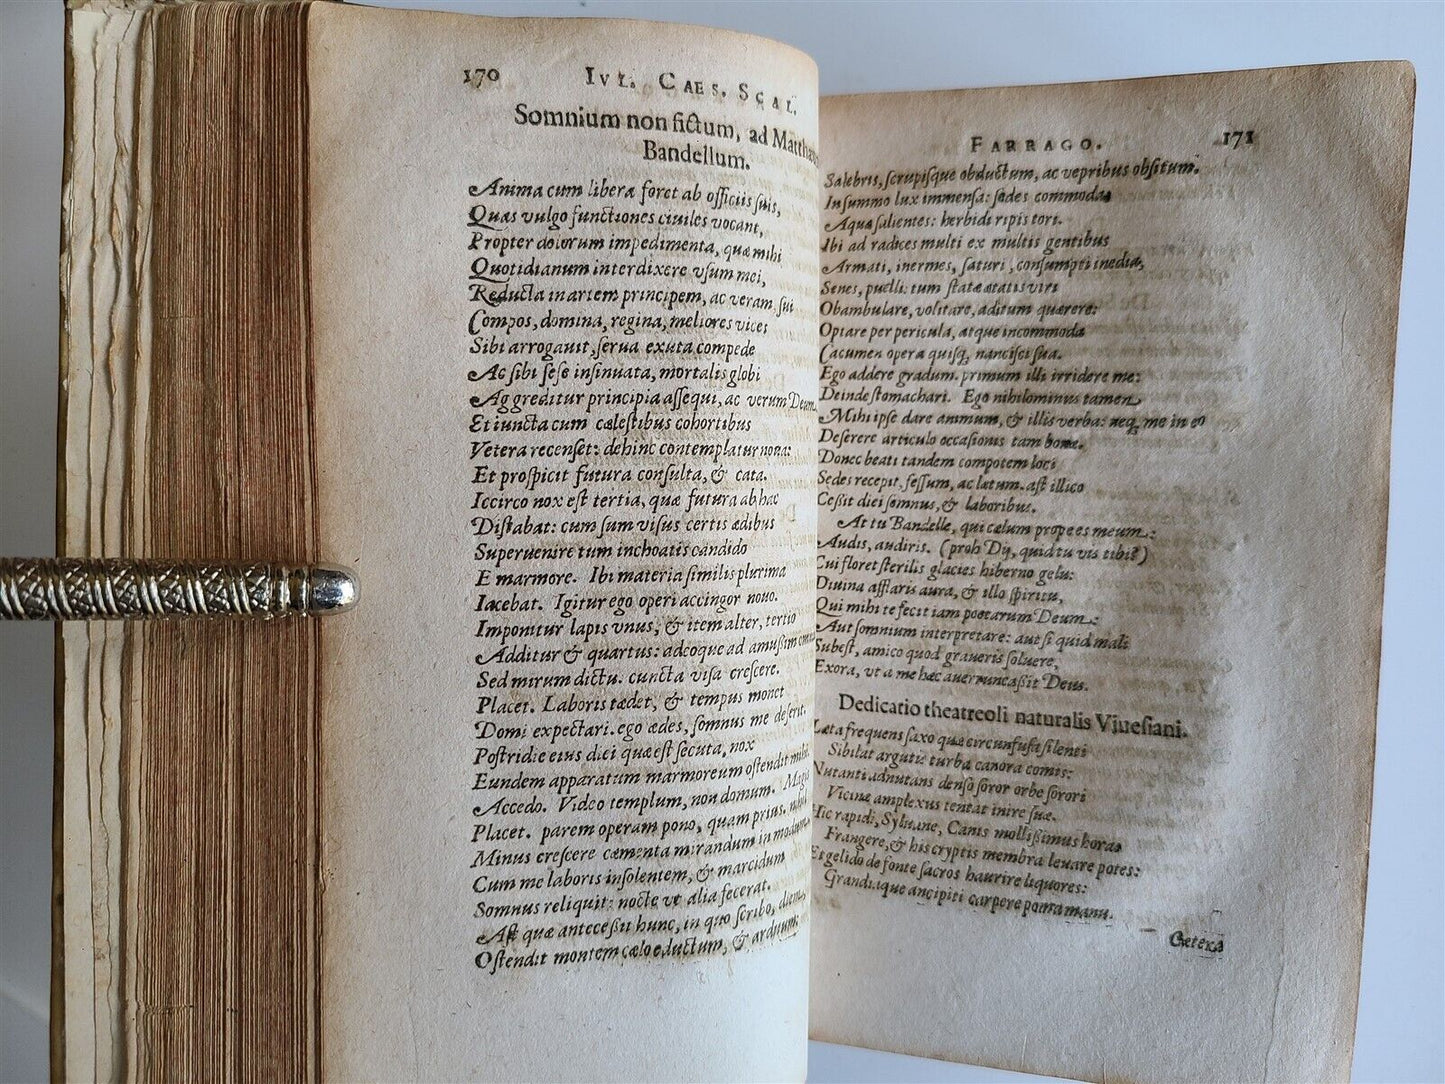 170 IVL. CAES. SCAL.
Somnium non fictum, ad Matthæum
Bandellum.
Anima cum libera foret ab officiis suis,
Quas vulgo functiones ciuiles vocant,
Propter dolorum impedimenta, quæ mihi
Quotidianum interdixere vsum mei,
Reducta in artem principem, ac veram sui
Compos, domina, regina, meliores vices
Sibi arrogauit, serua exuta compede
Ac sibi sese insinuata, mortalis globi
Aggreditur principia assequi, ac verum Deum,
Et iuncta cum cælestibus cohortibus
Vetera recenset: dehinc contemplatur noua:
Et prospicit futura consulta, & cata.
Iccirco nox est tertia, quæ futura ab hac
Distabat: cum sum visus certis ædibus
Superuenire tum inchoatis candido
E marmore. Ibi materia similis plurima
Iacebat. Igitur ego operi accingor nouo.
Imponitur lapis vnus, & item alter, tertio
Additur & quartus: adeoque ad amussim
Sed mirum dictu. cuncta visa crescere.
Placet. Laboris tædet, & tempus monet
Domi expectari. ego ædes, somnus me deserit.
Postridie eius diei quæ est secuta, nox
Eundem apparatum marmoreum ostendit mihi.
Accedo. Video templum, non domum. Magis
Placet. parem operam pono, quam prius. nihil
Minus crescere cæmenta mirandum in modum.
Cum me laboris insolentem, & marcidum
Somnus reliquit: nocte vt alia fecerat.
Ast quæ antecessit hunc, in quo scribo, diem,
Ostendit montem cælo eductum, & arduum:
FARRAGO. 171
Salebris, scrupisque obductum, ac vepribus obsitum.
In summo lux immensa: sedes commodæ
Aquæ salientes: herbidi ripis tori.
Ibi ad radices multi ex multis gentibus
Armati, inermes, saturi, consumpti inedia,
Senes, puelli: tum statæ ætatis viri
Obambulare, volitare, aditum quærere:
Optare per pericula, atque incommoda
Cacumen opera quisq, nancisci sua.
Ego addere gradum. primum illi irridere me:
Deinde stomachari. Ego nihilominus tamen
Mihi ipse dare animum, & illis verba: neq, me in eo
Deserere articulo occasionis tam bonæ.
Donec beati tandem compotem loci
Sedes recepit, fessum, ac lætum. ast illico
Cessit diei somnus, & laboribus.
At tu Bandelle, qui cælum prope es meum:
Audis, audiris. (proh Dij, quid tu vis tibi?)
Cui floret sterilis glacies hiberno gelu:
Diuina afflaris aura, & illo spiritu,
Qui mihi te fecit iam poetarum Deum:
Aut somnium interpretare: aut si quid mali
Subest, amico quod graueris soluere,
Exora, vt a me hæc auerruncassit Deus.
Dedicatio theatreoli naturalis Viuesiani.
Læta frequens saxo quæ circunfusa silenti
Sibilat argutæ turba canora comis:
Nutanti adnutans denso soror orbe sorori
Vicinæ amplexus tentat inire suæ.
Hic rapidi, Syluane, Canis mollissimus horas
Frangere, & his cryptis membra leuare potes:
Et gelido de fonte sacros haurire liquores:
Grandiaque ancipiti carpere poma manu.
Cætera